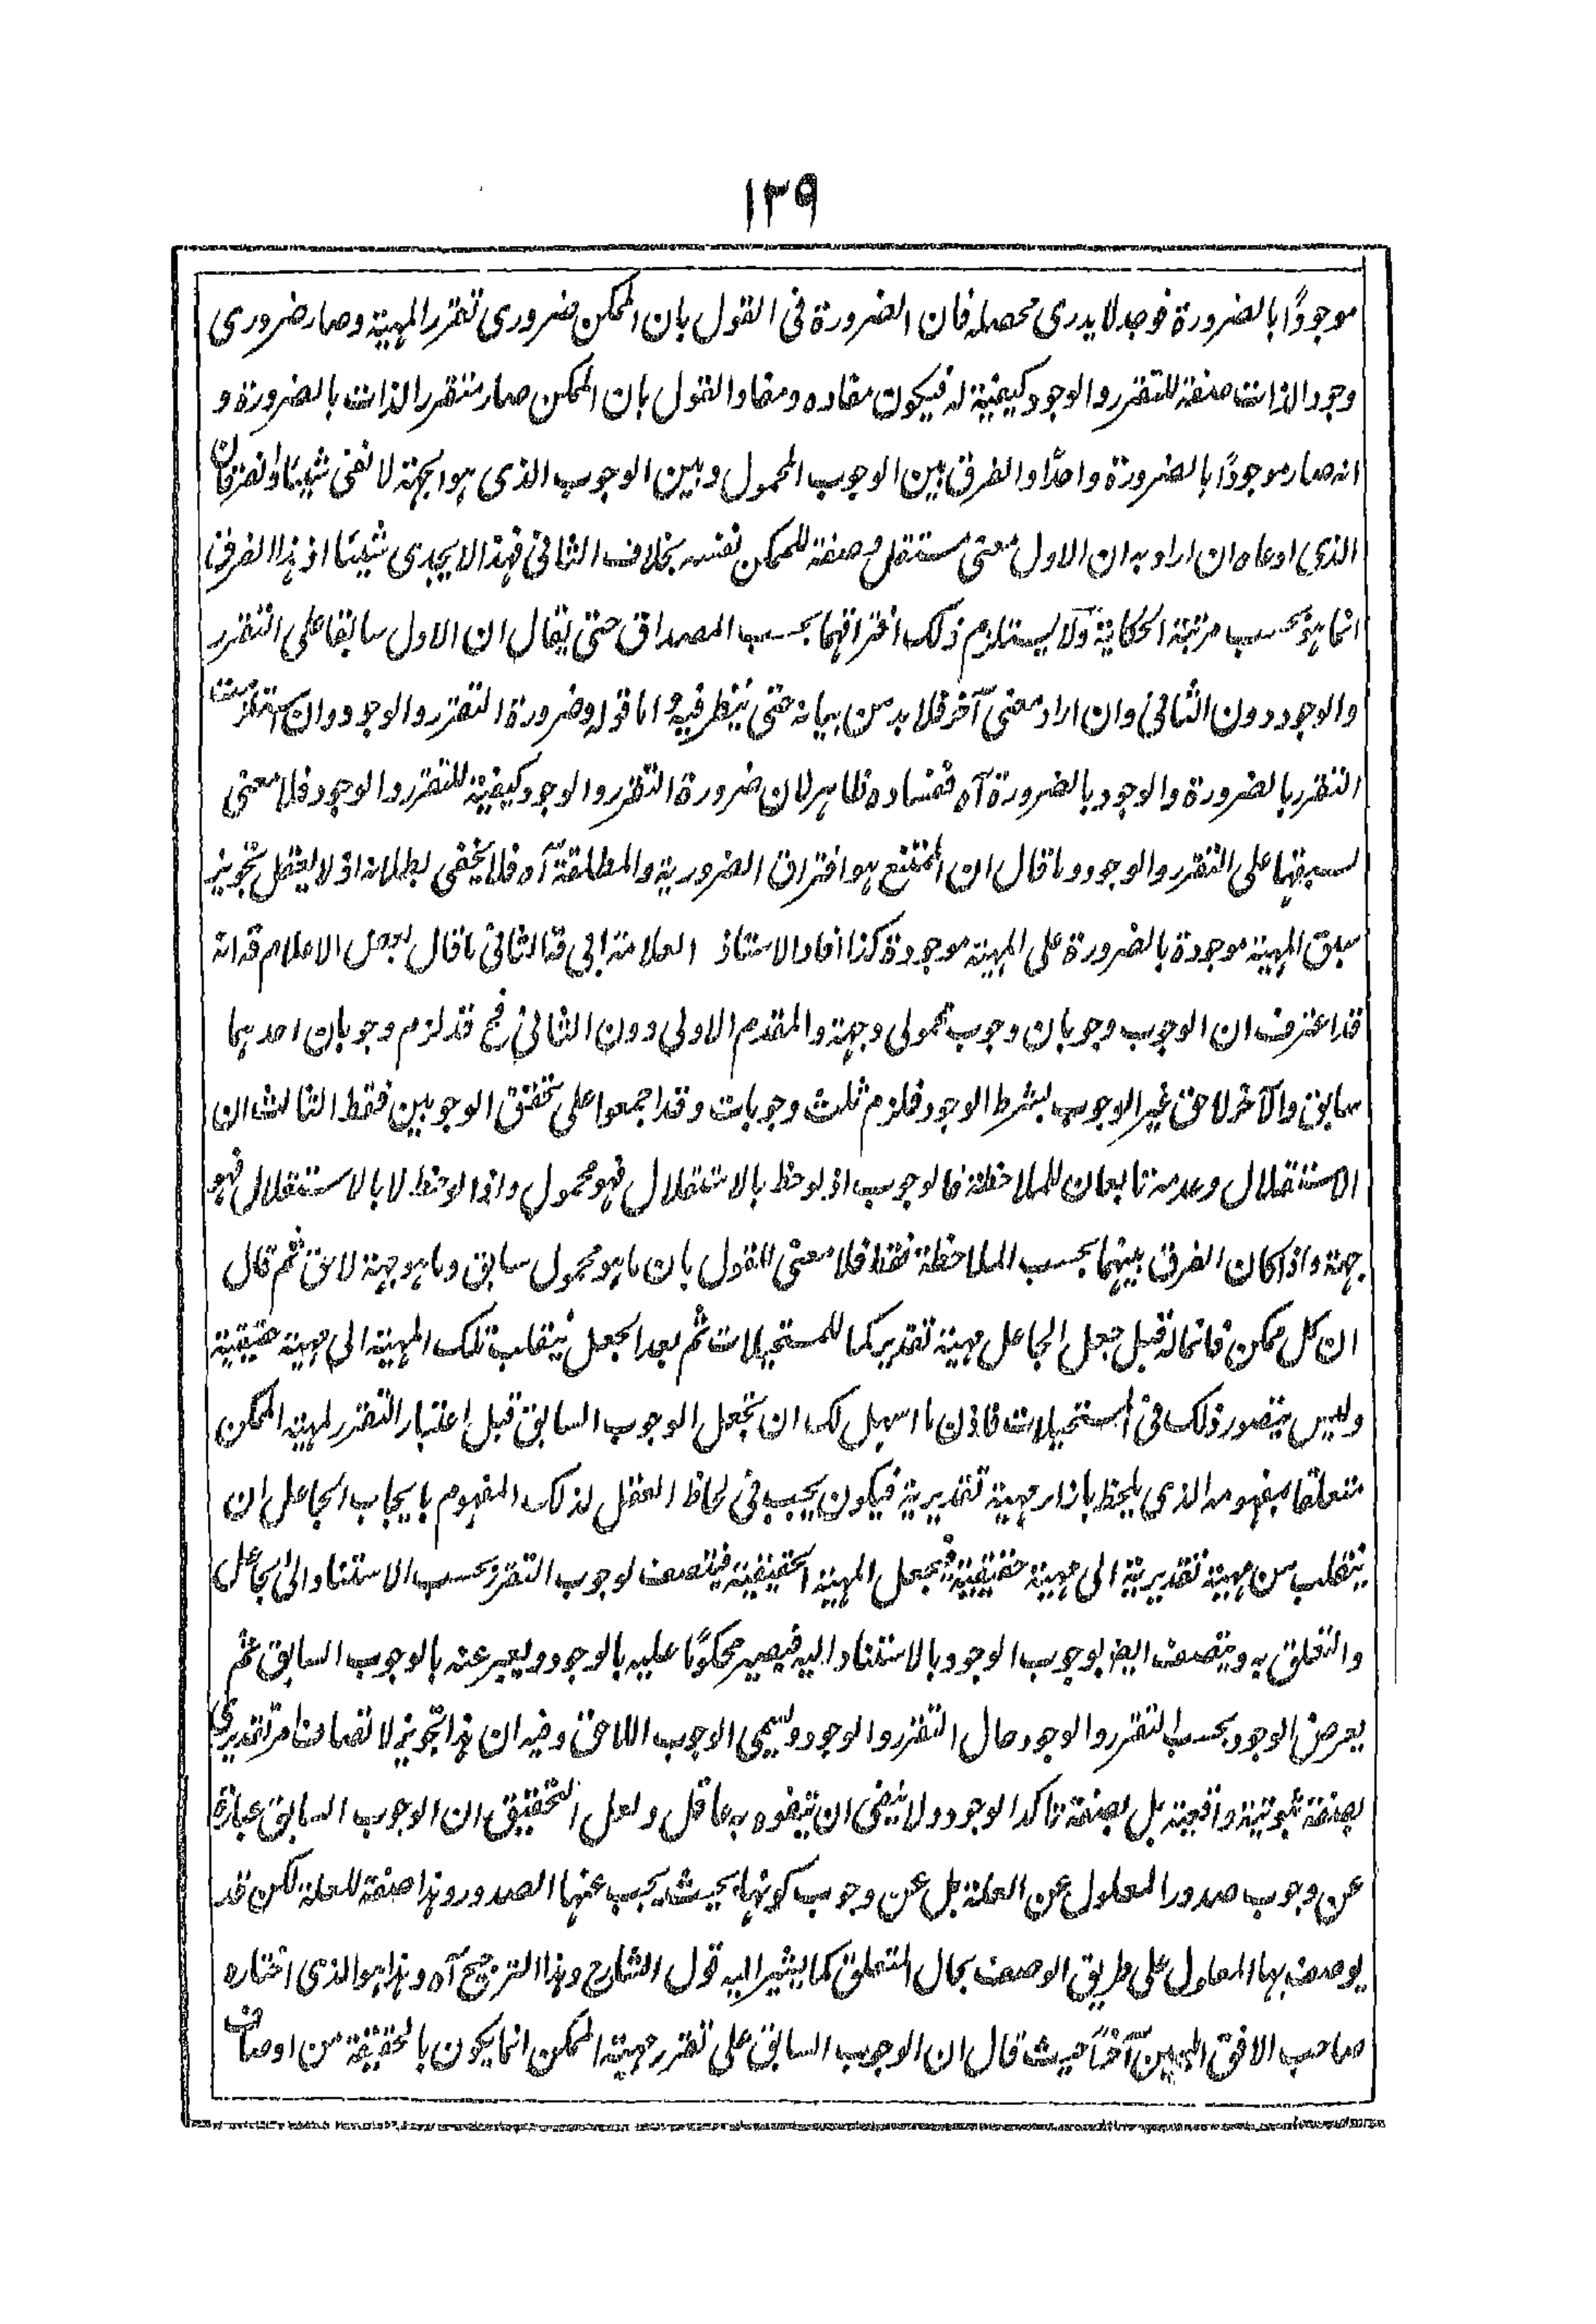 ١٣٩
موجودًا بالضرورة فوجد لا يدرى محصله فان الضرورة فى القول بان الممكن ضرورى تقرر المهية وصار ضرورى
وجود الذات صفة للتقرر والوجود كيفية له فيكون مفاده ومفاد القول بان الممكن صار متقرر الذات بالضرورة و
انه صار موجودًا بالضرورة واحدًا والفرق بين الوجوب المحمول وبين الوجوب الذى هو الجهة لا تغنى شيئا والفرقان
الذى ادعاه ان اراد به ان الاول معنى مستقل وصفة للممكن نفسه بخلاف الثانى فهذا لا يجدى شيئا اذ هذا الفرق
انما هو بحسب مرتبة الحكاية ولا يستلزم ذلك افتراقهما بحسب المصداق حتى يقال ان الاول سابقا على التقرر
والوجود دون الثانى وان اراد معنى آخر فلا بد من بيانه حتى ينظر فيه واما قوله وضرورة التقرر والوجود وان استلزمت
التقرر بالضرورة والوجود بالضرورة آه ففساده ظاهر لان ضرورة التقرر والوجود كيفية للتقرر والوجود فلا معنى
لسبقها على التقرر والوجود وما قال ان الممتنع هو افتراق الضرورية والمطلقة آه فلا يخفى بطلانه اذ لا يعقل تجويز
سبق المهية موجودة بالضرورة على المهية موجودة كذا افاد الاستاذ العلامة ابى قد الثانى ما قال بعض الاعلام قد انه
قد اعترف ان الوجوب وجوبان وجوب محمولى وجهة والمقدم الاولى دون الثانى فح قد لزم وجوبان احدهما
سابق والآخر لاحق غير الوجوب بشرط الوجود فلزم ثلث وجوبات وقد اجمعوا على تحقق الوجوبين فقط الثالث ان
الاستقلال وعدمه تابعان للملاحظة فالوجوب اذ لوحظ بالاستقلال فهو محمول واذا لوحظ لا بالاستقلال فهو
جهة واذا كان الفرق بينهما بحسب الملاحظة فقط فلا معنى للقول بان ما هو محمول سابق وما هو جهة لاحق ثم قال
ان كل ممكن فانما له قبل جعل الجاعل مهية تقدير كما للمستحيلات ثم بعد الجعل ينقلب تلك المهية الى مهية حقيقية
وليس يتصور ذلك فى المستحيلات فاذن ما اسهل لك ان تجعل الوجوب السابق قبل اعتبار التقرر لمهية الممكن
متعلقا بمفهومه الذى يلحظ بازاء مهية تقديرية فيكون يجب فى لحاظ العقل لذلك المفهوم بايجاب الجاعل ان
ينقلب من مهية تقديرية الى مهية حقيقية فبجعل المهية الحقيقية فيتصف لوجوب التقرر بحسب الاستناد الى الجاعل
والتعلق به ويتصف ايضا بوجوب الوجود بالاستناد اليه فيصير محكومًا عليه بالوجود ويعبر عنه بالوجوب السابق ثم
يعرض الوجود بحسب التقرر والوجود حال التقرر والوجود ويسمى الوجوب اللاحق وفيه ان هذا تجويز لاتصاف امر تقديرى
بصفة ثبوتية واقعية بل بصفة تاكد الوجود ولا ينبغى ان يتفوه به عاقل ولعل التحقيق ان الوجوب السابق عبارة
عن وجوب صدور المعلول عن العلة بل عن وجوب كونها بحيث يجب عنها الصدور وهذا صفة للعلة لكن قد
يوصف بها المعلول على طريق الوصف بحال المتعلق كما يشير اليه قول الشارح وهذا الترجيح آه وهذا هو الذى اختاره
صاحب الافق المبين آخرًا حيث قال ان الوجوب السابق على تقرر مهية الممكن انما يكون بالحقيقة من اوصاف